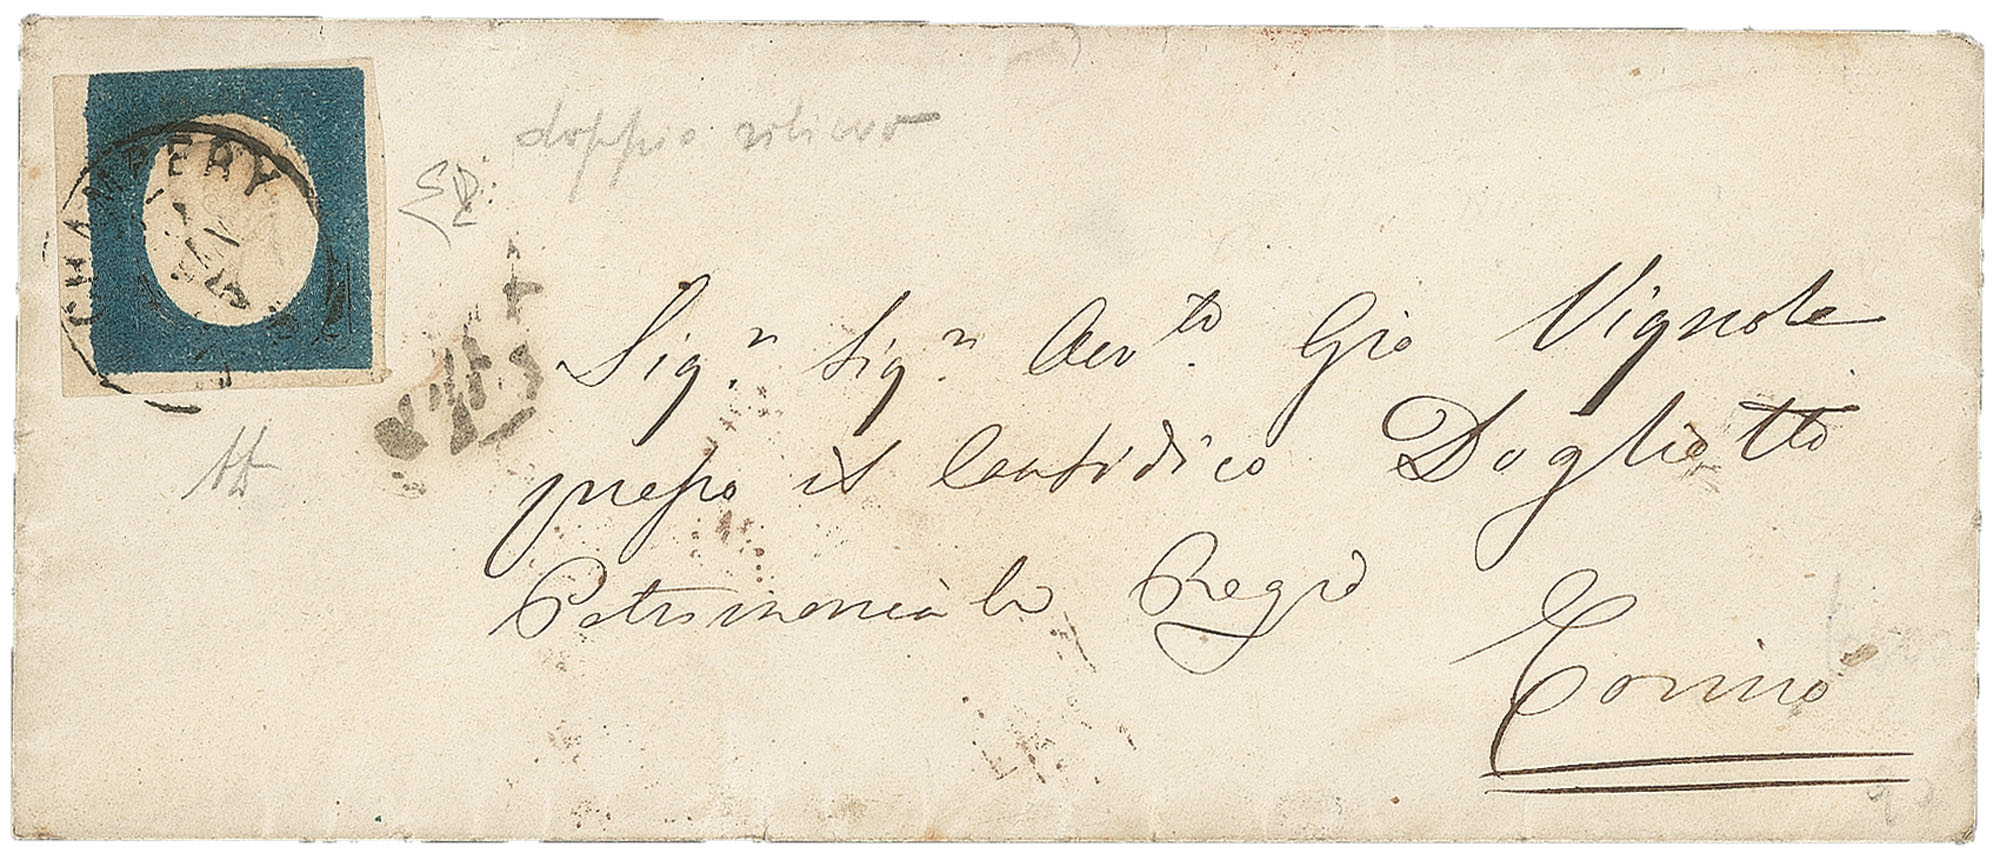 CHAMBERY
doppio rilievo
ED.
Sig.r Sig.r Avv.to Gio Vignola
presso il Causidico Dogliotti
Patrimoniale Regio
Torino